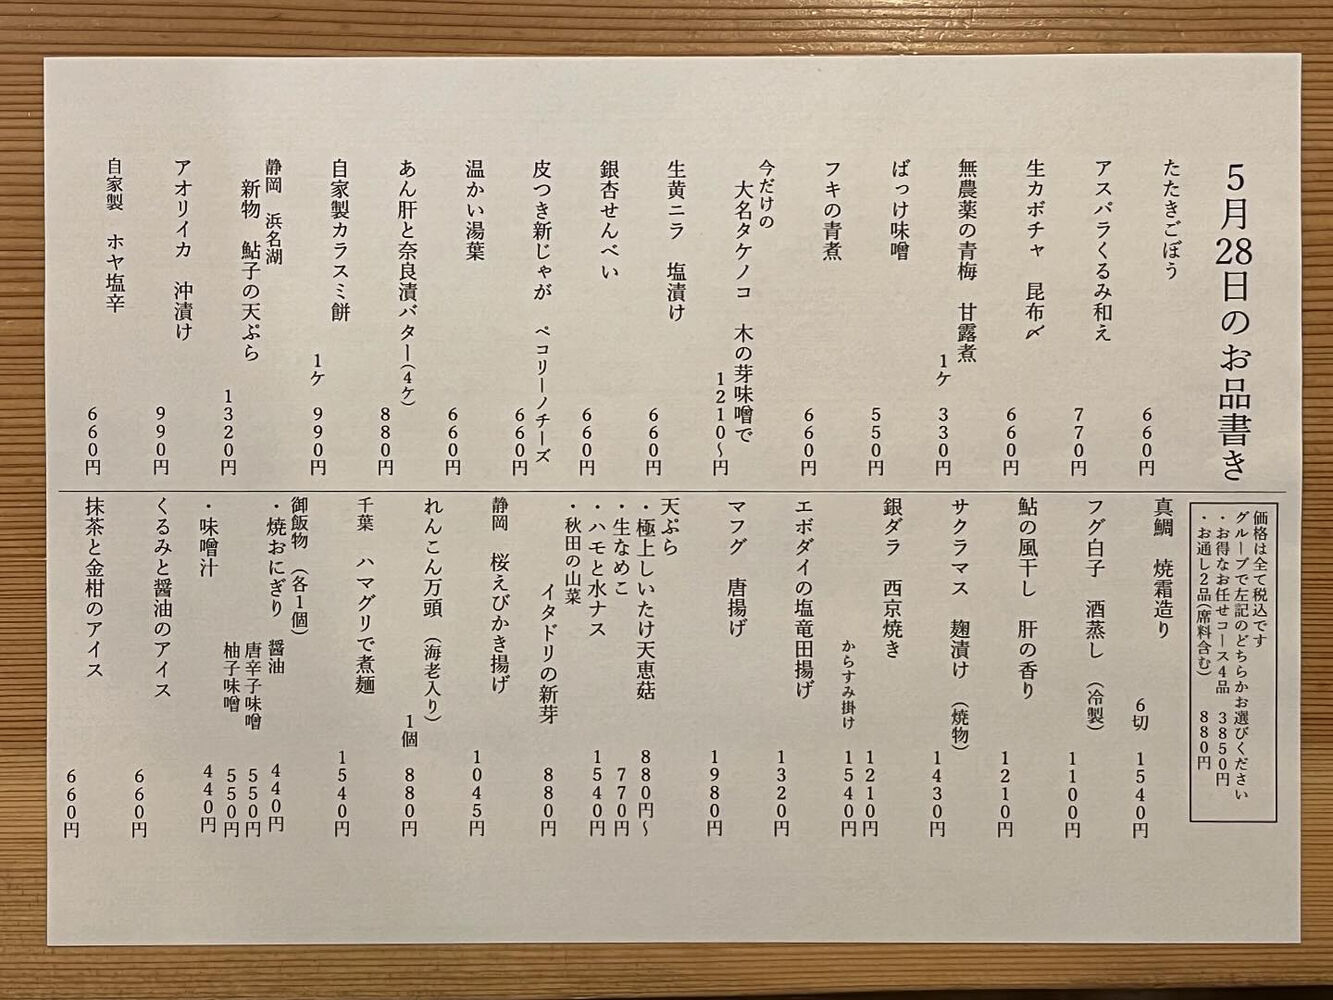 5月28日のお品書き
たたきごぼう
660円
アスパラくるみ和え
770円
生カボチャ　昆布〆
660円
無農薬の青梅　甘露煮
1ケ　330円
ばっけ味噌
550円
フキの青煮
660円
今だけの
大名タケノコ　木の芽味噌で
1210〜円
生黄ニラ　塩漬け
660円
銀杏せんべい
660円
皮つき新じゃが　ペコリーノチーズ
660円
温かい湯葉
660円
あん肝と奈良漬バター(4ケ)
880円
自家製カラスミ餅
1ケ　990円
静岡　浜名湖
新物　鮎子の天ぷら
1320円
アオリイカ　沖漬け
990円
自家製　ホヤ塩辛
660円
価格は全て税込です
グループで左記のどちらかお選びください
・お得なお任せコース4品　3850円
・お通し2品(席料含む)　880円
真鯛　焼霜造り
6切　1540円
フグ白子　酒蒸し　(冷製)
1100円
鮎の風干し　肝の香り
1210円
サクラマス　麹漬け　(焼物)
1430円
銀ダラ　西京焼き
1210円
からすみ掛け　1540円
エボダイの塩竜田揚げ
1320円
マフグ　唐揚げ
1980円
天ぷら
・極上しいたけ天恵菇　880円〜
・生なめこ　770円
・ハモと水ナス　1540円
・秋田の山菜
イタドリの新芽　880円
静岡　桜えびかき揚げ
1045円
れんこん万頭　(海老入り)
1個　880円
千葉　ハマグリで煮麺
1540円
御飯物　(各1個)
・焼おにぎり　醤油　440円
唐辛子味噌　550円
柚子味噌　550円
・味噌汁　440円
くるみと醤油のアイス
660円
抹茶と金柑のアイス
660円